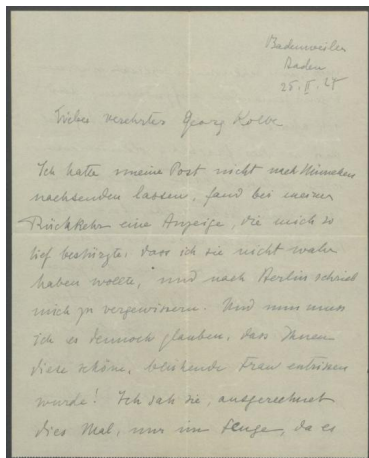 Badenweiler
Baden
25. II. 27
Lieber verehrter Georg Kolbe
Ich hatte meine Post nicht nach München
nachsenden lassen, fand bei meiner
Rückkehr eine Anzeige, die mich so
tief bestürzte, dass ich sie nicht wahr
haben wollte, und nach Berlin schrieb
mich zu vergewissern. Und nun muss
ich es dennoch glauben, dass Ihnen
diese schöne, blühende Frau entrissen
wurde! Ich sah sie, ausgerechnet
dies Mal, nur im Fluge, da es